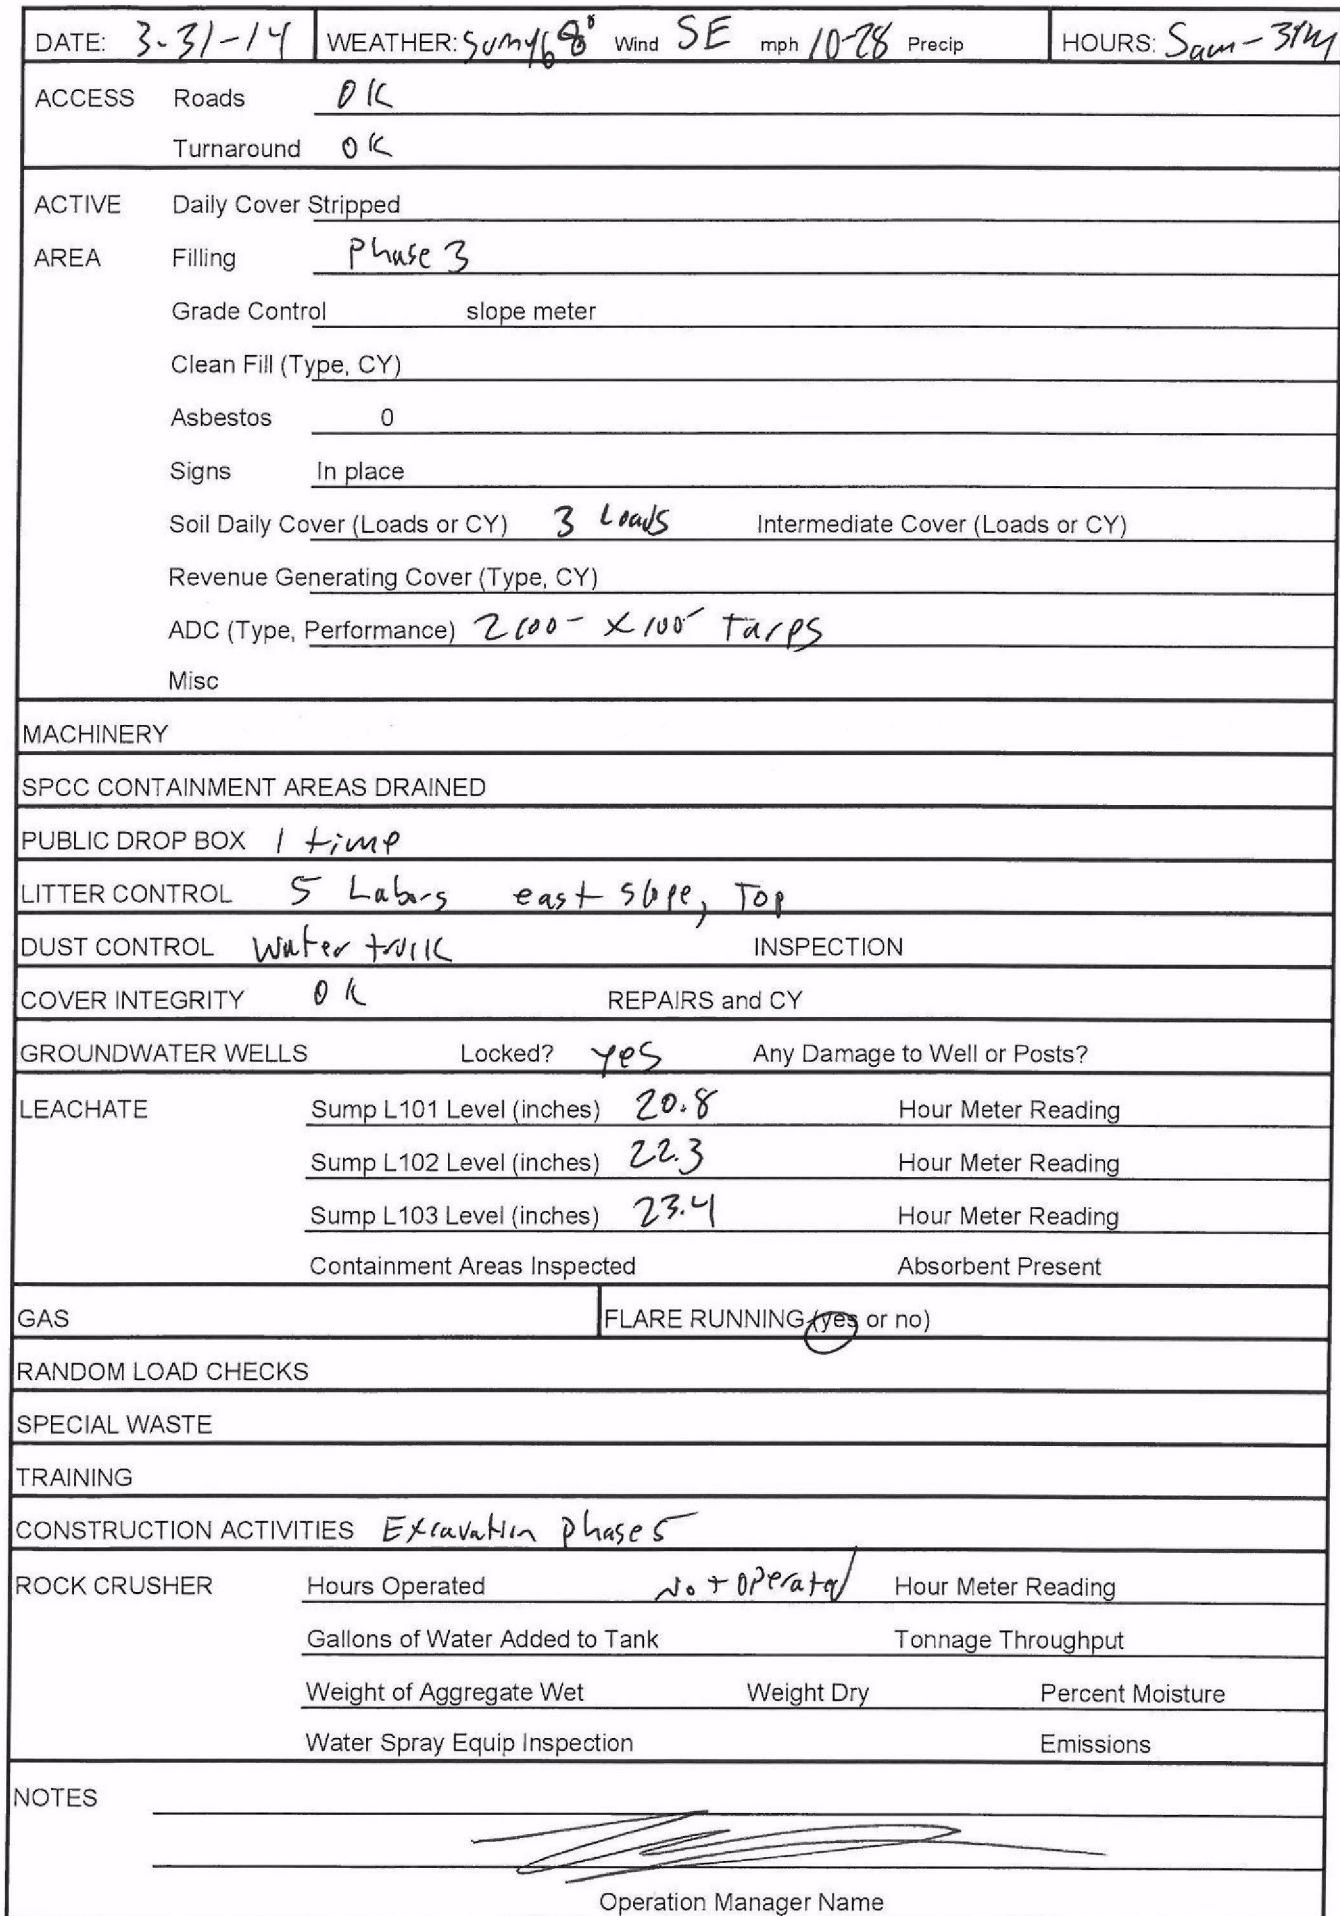 DATE: 3-31-14 WEATHER: Sunny 68° Wind SE mph 10-28 Precip HOURS: 5am-3PM
ACCESS Roads OK
Turnaround OK
ACTIVE Daily Cover Stripped
AREA Filling Phase 3
Grade Control slope meter
Clean Fill (Type, CY)
Asbestos 0
Signs In place
Soil Daily Cover (Loads or CY) 3 Loads Intermediate Cover (Loads or CY)
Revenue Generating Cover (Type, CY)
ADC (Type, Performance) 2 100- x 100 Tarps
Misc
MACHINERY
SPCC CONTAINMENT AREAS DRAINED
PUBLIC DROP BOX 1 time
LITTER CONTROL 5 Labors east slope, Top
DUST CONTROL Water truck INSPECTION
COVER INTEGRITY OK REPAIRS and CY
GROUNDWATER WELLS Locked? yes Any Damage to Well or Posts?
LEACHATE Sump L101 Level (inches) 20.8 Hour Meter Reading
Sump L102 Level (inches) 22.3 Hour Meter Reading
Sump L103 Level (inches) 23.4 Hour Meter Reading
Containment Areas Inspected Absorbent Present
GAS FLARE RUNNING (yes or no)
RANDOM LOAD CHECKS
SPECIAL WASTE
TRAINING
CONSTRUCTION ACTIVITIES Excavation Phase 5
ROCK CRUSHER Hours Operated Not Operated Hour Meter Reading
Gallons of Water Added to Tank Tonnage Throughput
Weight of Aggregate Wet Weight Dry Percent Moisture
Water Spray Equip Inspection Emissions
NOTES
Operation Manager Name